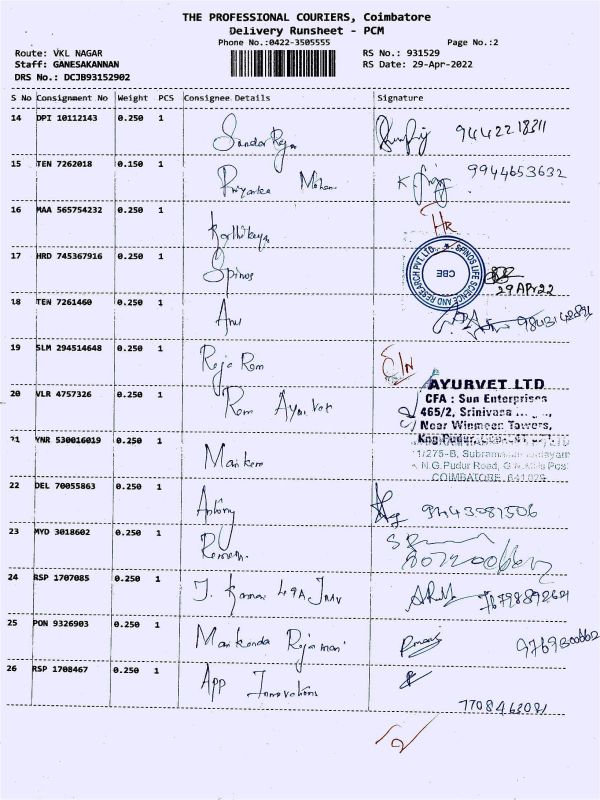 THE PROFESSIONAL COURIERS, Coimbatore
Delivery Runsheet - PCM
Phone No.:0422-3505555
Page No.:2
Route: VKL NAGAR
RS No.: 931529
Staff: GANESAKANNAN
RS Date: 29-Apr-2022
DRS No.: DCJB93152902
S No Consignment No Weight PCS Consignee Details Signature
14 DPI 10112143 0.250 1 Sundar Raja 9442218311
15 TEN 7262018 0.150 1 Priyanka Mohan K 9944653632
16 MAA 565754232 0.250 1 Karthikeyan HR
17 HRD 745367916 0.250 1 Spinos
SPINOS LIFE SCIENCE AND RESEARCH PVT LTD
CBE
29 Apr 22
18 TEN 7261460 0.250 1 Anu
19 SLM 294514648 0.250 1 Raja Ram
20 VLR 4757326 0.250 1 Ram Ayurvet
AYURVET LTD
CFA : Sun Enterprises
465/2, Srinivasa
Near Winmeen Towers,
21 YNR 530016019 0.250 1
11/275-B, Subramaniam
N.G.Pudur Road, G.N.Mills Post
COIMBATORE 641029
22 DEL 70055863 0.250 1 Antony
23 MYD 3018602 0.250 1
24 RSP 1707085 0.250 1 J.
25 PON 9326903 0.250 1 9769300662
26 RSP 1708467 0.250 1 App Innovations
7708463081